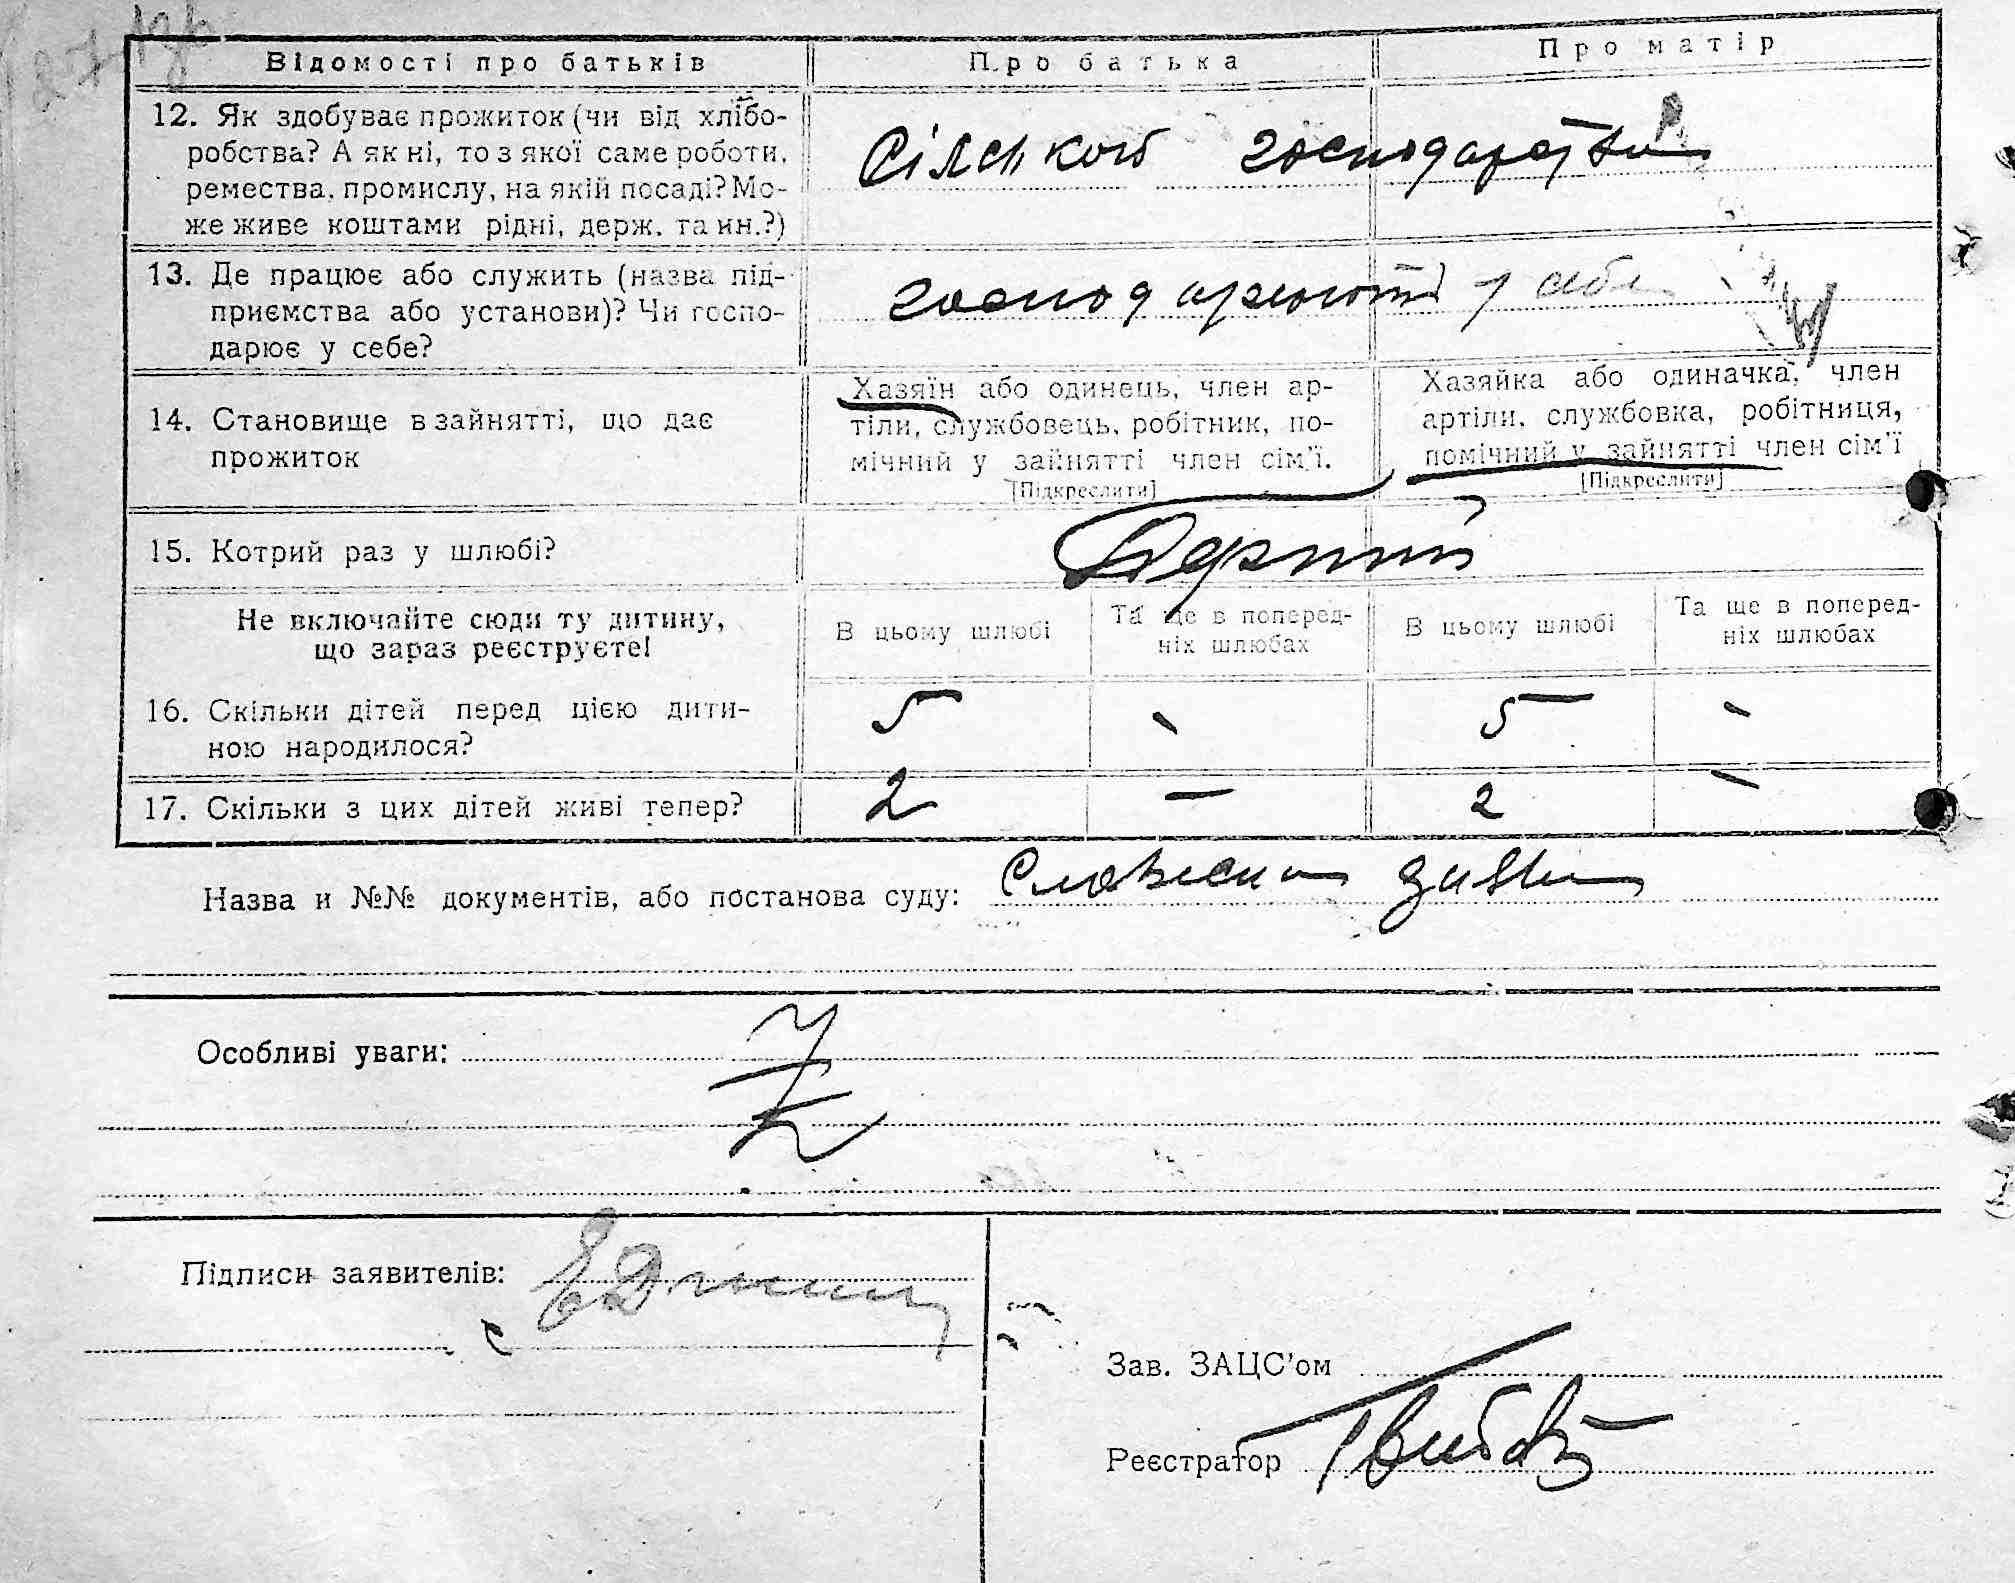 Відомості про батьків
Про батька
Про матір
12. Як здобуває прожиток (чи від хлібо-
робства? А як ні, то з якої саме роботи,
ремества, промислу, на якій посаді? Мо-
же живе коштами рідні, держ. та ин.?)
13. Де працює або служить (назва під-
приємства або установи)? Чи госпо-
дарює у себе?
господарюють у себе
14. Становище в зайнятті, що дає
прожиток
Хазяїн або одинець, член ар-
тіли, службовець, робітник, по-
мічний у зайнятті член сім'ї.
[Підкреслити]
Хазяйка або одиначка, член
артіли, службовка, робітниця,
помічний у зайнятті член сім'ї
[Підкреслити]
15. Котрий раз у шлюбі?
Не включайте сюди ту дитину,
що зараз реєструєте!
В цьому шлюбі
Та ще в поперед-
ніх шлюбах
В цьому шлюбі
Та ще в поперед-
ніх шлюбах
16. Скільки дітей перед цією дити-
ною народилося?
5 - 5 -
17. Скільки з цих дітей живі тепер?
2 — 2 -
Назва и №№ документів, або постанова суду:
Особливі уваги:
Підписи заявителів:
Зав. ЗАЦС'ом
Реєстратор